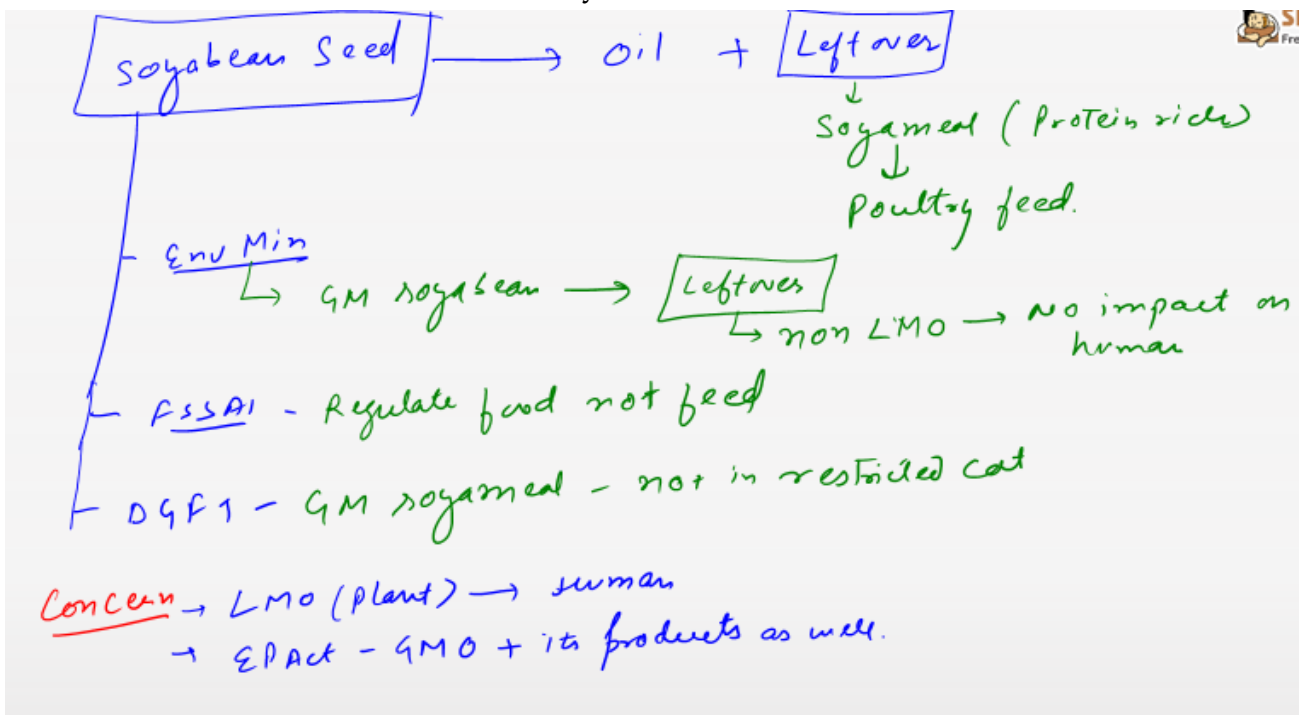 Soyabean Seed → Oil + Leftover
↓
Soyameal (Protein rich)
↓
Poultry feed.
Env Min
↳ GM soyabean → Leftover
↳ non LMO → No impact on
human
FSSAI - Regulate food not feed
DGFT - GM soyameal - not in restricted cat
Concern → LMO (Plant) → Human
→ EPAct - GMO + its products as well.